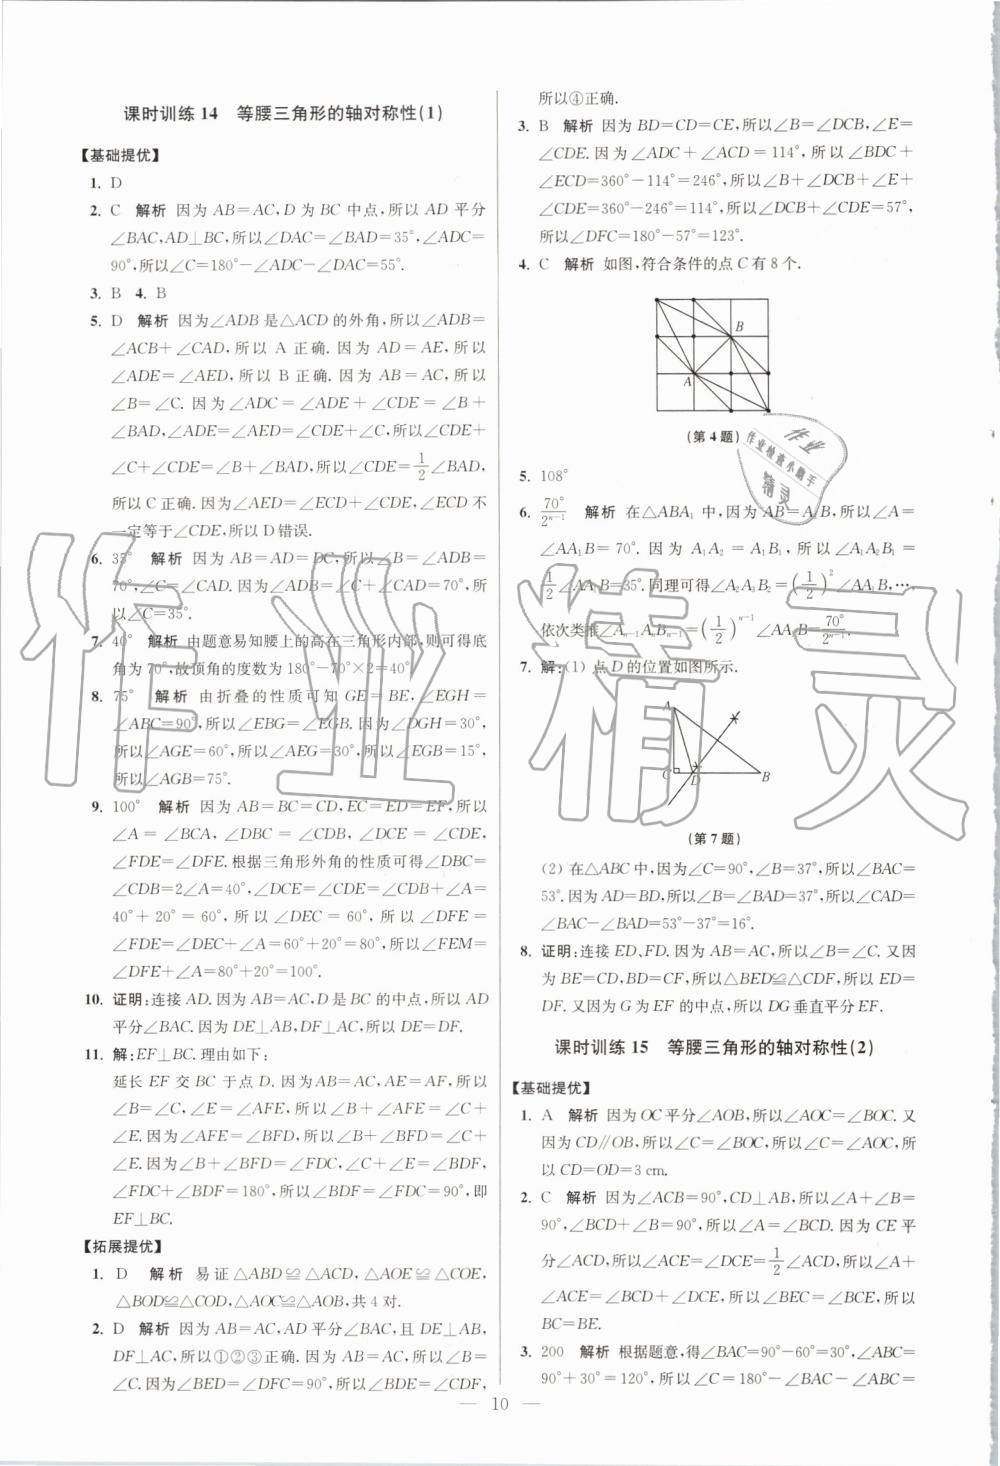 课时训练14 等腰三角形的轴对称性(1)
【基础提优】
1. D
2. C 解析 因为 AB=AC,D 为 BC 中点,所以 AD 平分
∠BAC,AD⊥BC,所以∠DAC=∠BAD=35°,∠ADC=
90°,所以∠C=180°-∠ADC-∠DAC=55°.
3. B 4. B
5. D 解析 因为∠ADB是△ACD的外角,所以∠ADB=
∠ACB+∠CAD,所以 A 正确.因为 AD=AE,所以
∠ADE=∠AED,所以 B 正确.因为 AB=AC,所以
∠B=∠C.因为∠ADC=∠ADE+∠CDE=∠B+
∠BAD,∠ADE=∠AED=∠CDE+∠C,所以∠CDE+
∠C+∠CDE=∠B+∠BAD,所以∠CDE=1/2∠BAD,
所以 C 正确.因为∠AED=∠ECD+∠CDE,∠ECD 不
一定等于∠CDE,所以 D 错误.
6. 35° 解析 因为 AB=AD=DC,所以∠B=∠ADB=
70°,∠C=∠CAD.因为∠ADB=∠C+∠CAD=70°,所
以∠C=35°.
7. 40° 解析 由题意易知腰上的高在三角形内部,则可得底
角为70°,故顶角的度数为180°-70°×2=40°.
8. 75° 解析 由折叠的性质可知 GE=BE,∠EGH=
∠ABC=90°,所以∠EBG=∠EGB.因为∠DGH=30°,
所以∠AGE=60°,所以∠AEG=30°,所以∠EGB=15°,
所以∠AGB=75°.
9. 100° 解析 因为 AB=BC=CD,EC=ED=EF,所以
∠A=∠BCA,∠DBC=∠CDB,∠DCE=∠CDE,
∠FDE=∠DFE.根据三角形外角的性质可得∠DBC=
∠CDB=2∠A=40°,∠DCE=∠CDE=∠CDB+∠A=
40°+20°=60°,所以∠DEC=60°,所以∠DFE=
∠FDE=∠DEC+∠A=60°+20°=80°,所以∠FEM=
∠DFE+∠A=80°+20°=100°.
10. 证明:连接 AD.因为 AB=AC,D 是 BC 的中点,所以 AD
平分∠BAC.因为 DE⊥AB,DF⊥AC,所以 DE=DF.
11. 解:EF⊥BC.理由如下:
延长 EF 交 BC 于点 D.因为 AB=AC,AE=AF,所以
∠B=∠C,∠E=∠AFE,所以∠B+∠AFE=∠C+
∠E.因为∠AFE=∠BFD,所以∠B+∠BFD=∠C+
∠E.因为∠B+∠BFD=∠FDC,∠C+∠E=∠BDF,
∠FDC+∠BDF=180°,所以∠BDF=∠FDC=90°,即
EF⊥BC.
【拓展提优】
1. D 解析 易证△ABD≌△ACD,△AOE≌△COE,
△BOD≌△COD,△AOC≌△AOB,共4对.
2. D 解析 因为 AB=AC,AD 平分∠BAC,且 DE⊥AB,
DF⊥AC,所以①②③正确.因为 AB=AC,所以∠B=
∠C.因为∠BED=∠DFC=90°,所以∠BDE=∠CDF,
所以④正确.
3. B 解析 因为 BD=CD=CE,所以∠B=∠DCB,∠E=
∠CDE.因为∠ADC+∠ACD=114°,所以∠BDC+
∠ECD=360°-114°=246°,所以∠B+∠DCB+∠E+
∠CDE=360°-246°=114°,所以∠DCB+∠CDE=57°,
所以∠DFC=180°-57°=123°.
4. C 解析 如图,符合条件的点 C 有8个.
B
A
(第4题)
5. 108°
6. 70°/2ⁿ⁻¹ 解析 在△ABA₁ 中,因为AB=A₁B,所以∠A=
∠AA₁B=70°.因为 A₁A₂=A₁B₁,所以∠A₁A₂B₁=
1/2∠AA₁B=35°.同理可得∠A₂A₃B₂=(1/2)²∠AA₁B,…,
依次类推∠Aₙ₋₁AₙBₙ₋₁=(1/2)ⁿ⁻¹∠AA₁B=70°/2ⁿ⁻¹.
7. 解:(1) 点 D 的位置如图所示.
A
C D B
(第7题)
(2) 在△ABC中,因为∠C=90°,∠B=37°,所以∠BAC=
53°.因为AD=BD,所以∠B=∠BAD=37°,所以∠CAD=
∠BAC-∠BAD=53°-37°=16°.
8. 证明:连接 ED、FD.因为 AB=AC,所以∠B=∠C.又因
为 BE=CD,BD=CF,所以△BED≌△CDF,所以 ED=
DF.又因为 G 为 EF 的中点,所以 DG 垂直平分 EF.
课时训练15 等腰三角形的轴对称性(2)
【基础提优】
1. A 解析 因为OC平分∠AOB,所以∠AOC=∠BOC.又
因为CD∥OB,所以∠C=∠BOC,所以∠C=∠AOC,所
以CD=OD=3 cm.
2. C 解析 因为∠ACB=90°,CD⊥AB,所以∠A+∠B=
90°,∠BCD+∠B=90°,所以∠A=∠BCD.因为 CE 平
分∠ACD,所以∠ACE=∠DCE=1/2∠ACD,所以∠A+
∠ACE=∠BCD+∠DCE,所以∠BEC=∠BCE,所以
BC=BE.
3. 200 解析 根据题意,得∠BAC=90°-60°=30°,∠ABC=
90°+30°=120°,所以∠C=180°-∠BAC-∠ABC=
— 10 —
作业
作业检查小助手
精灵
作业精灵